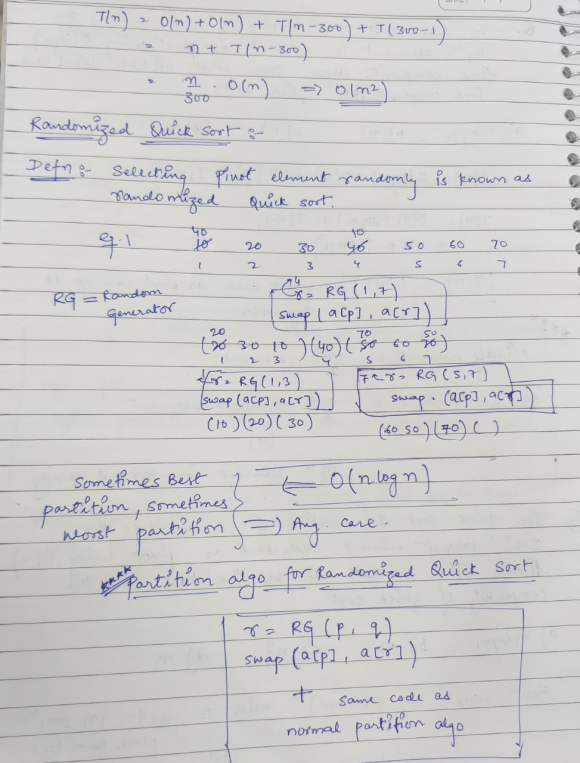 T(n) = O(n) + O(n) + T(n-300) + T(300-1)
= n + T(n-300)
= n/300 . O(n) => O(n²)
Randomized Quick Sort :-
Defn :- Selecting pivot element randomly is known as
randomized Quick sort.
40 10
eg.1 10 20 30 40 50 60 70
1 2 3 4 5 6 7
RG = Random Generator
4
r = RG (1,7)
swap (a[p], a[r])
20 70 50
30 10 ) (40) ( 50 60
1 2 3 4 5 6 7
r = RG(1,3)
swap(a[p], a[r])
7 ← r = RG(5,7)
swap. (a[p], a[r])
(10) (20) (30)
(60 50) (70) ( )
Sometimes Best
partition, sometimes
worst partition
⇐ O(n log n)
=> Avg case.
**** Partition algo for Randomized Quick Sort
r = RG (p, q)
swap (a[p], a[r])
+ same code as
normal partition algo